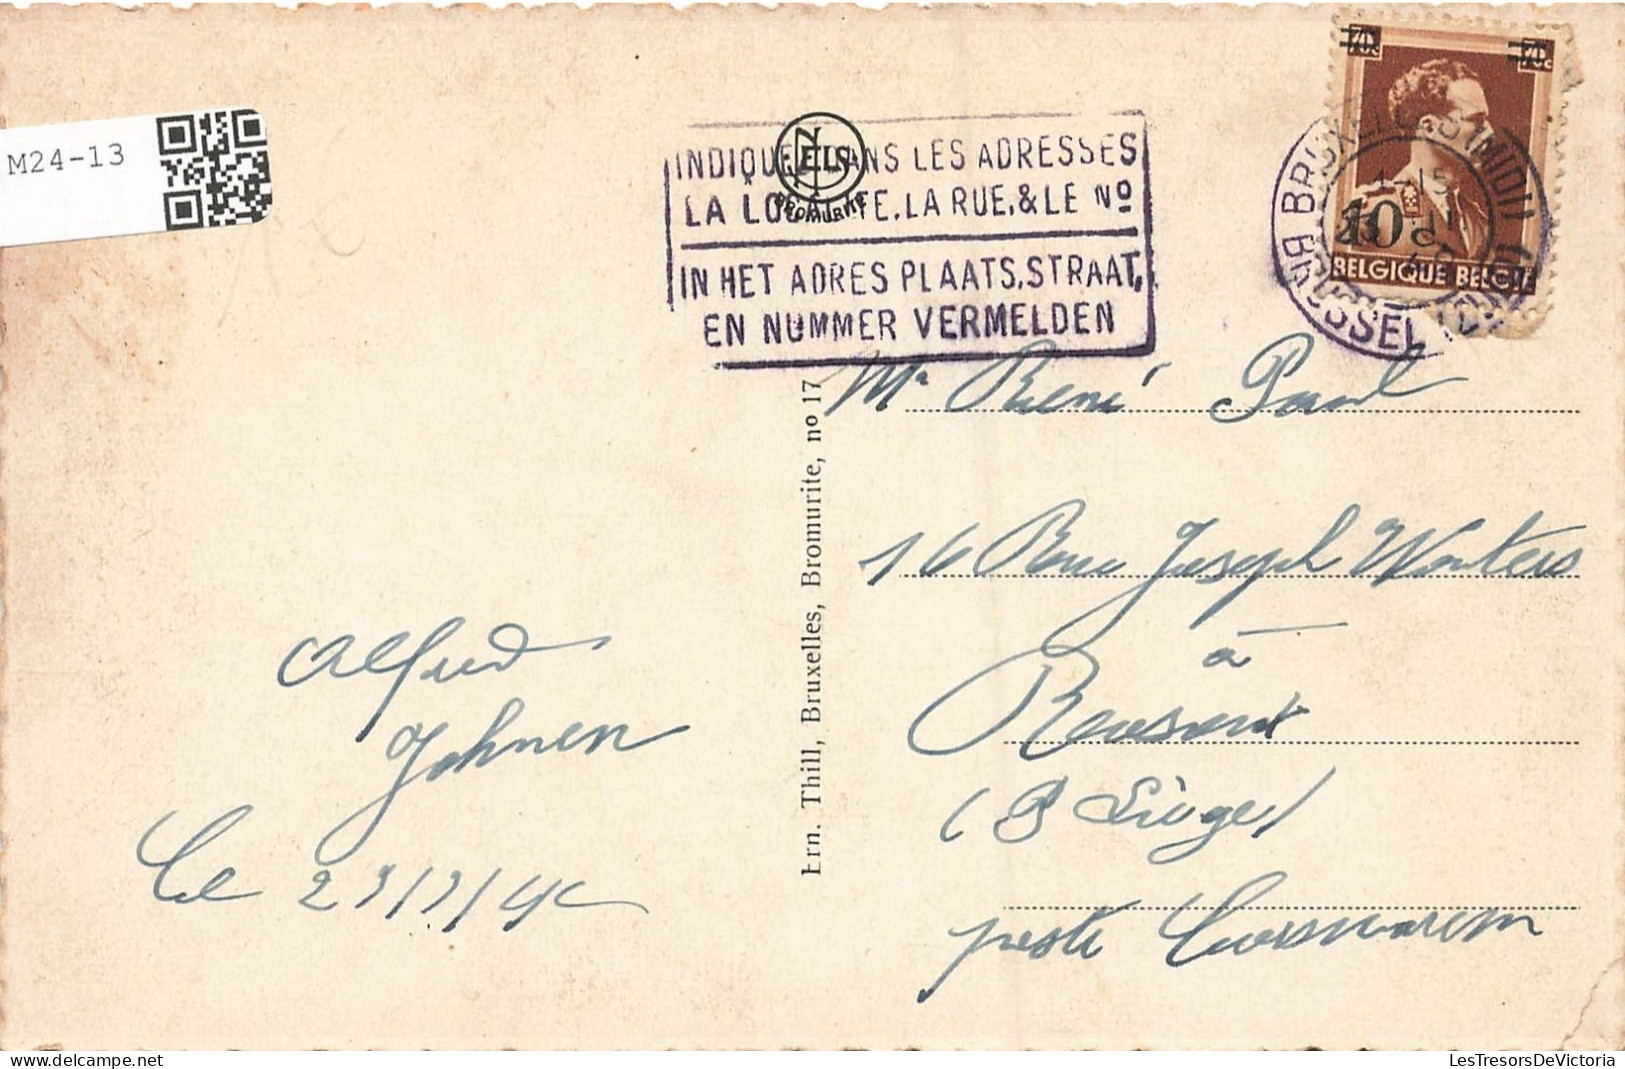 M24-13
NELS
BROMURITE
INDIQUEZ DANS LES ADRESSES
LA LOCALITE, LA RUE, & LE Nº
IN HET ADRES PLAATS, STRAAT,
EN NUMMER VERMELDEN
BRUXELLES (MIDI)
BRUSSEL (ZUID)
10c
BELGIQUE BELGIE
Mr René Paul
16 Rue Joseph Wauters
à
(P Liège)
poste Corswarem
Alfred
Johnen
Le
Ern. Thill, Bruxelles, Bromurite, no 17
LesTresorsDeVictoria